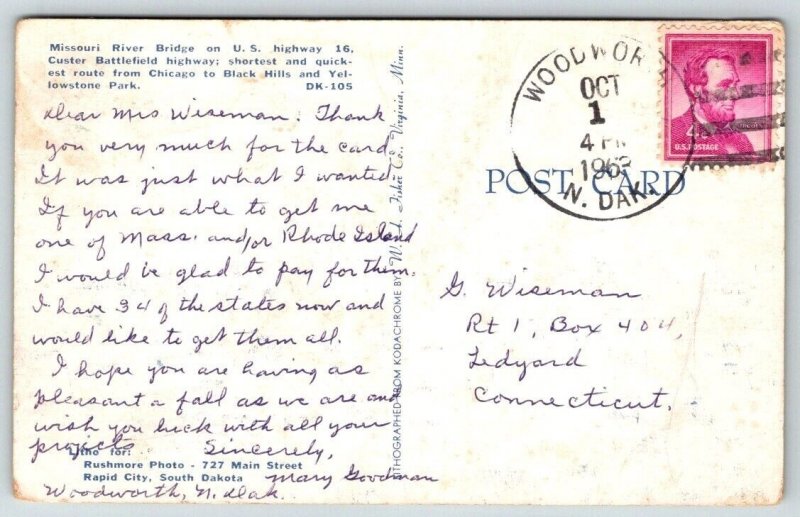 Missouri River Bridge on U.S. highway 16,
Custer Battlefield highway; shortest and quick-
est route from Chicago to Black Hills and Yel-
lowstone Park. DK-105
Dear Mrs Wiseman. Thank
you very much for the card.
It was just what I wanted.
If you are able to get me
one of Mass. and/or Rhode Island
I would be glad to pay for them.
I have 34 of the states now and
would like to get them all.
I hope you are having as
pleasant a fall as we are and
wish you luck with all your
projects. Sincerely,
Mary Goodman
Woodworth, N. Dak.
Litho for:
Rushmore Photo - 727 Main Street
Rapid City, South Dakota
LITHOGRAPHED FROM KODACHROME BY Fisher Co., Virginia, Minn.
WOODWOR
OCT
1
4 PM
196
N. DAK.
4¢
U.S. POSTAGE
POST CARD
G. Wiseman
Rt 1, Box 404,
Ledyard
Connecticut.